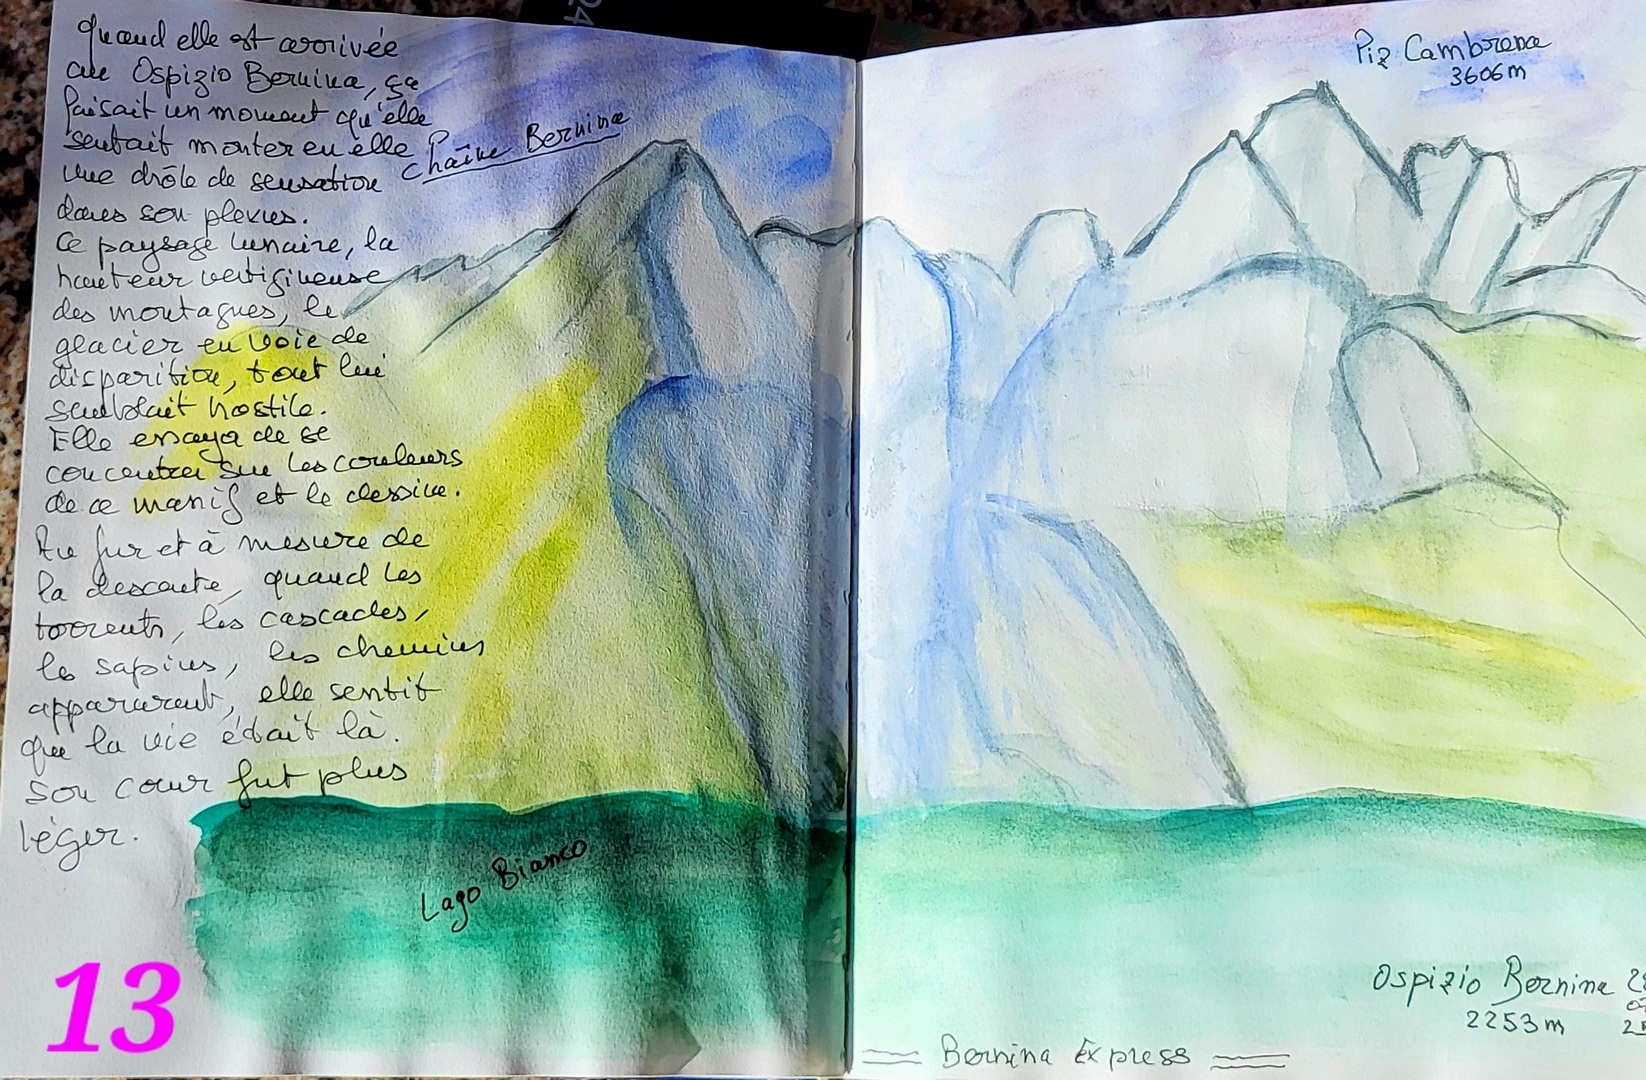 quand elle est arrivée
au Ospizio Bernina, ça
faisait un moment qu'elle
sentait monter en elle
une drôle de sensation
dans son plexus.
Ce paysage lunaire, la
hauteur vertigineuse
des montagnes, le
glacier en voie de
disparition, tout lui
semblait hostile.
Elle essaya de se
concentrer sur les couleurs
de ce massif et le dessine.
Au fur et à mesure de
la descente, quand les
torrents, les cascades,
les sapins, les chemins
apparurent, elle sentit
que la vie était là.
Son cœur fut plus
léger.
Chaîne Bernina
Piz Cambrena
3606m
Lago Bianco
Ospizio Bernina
2253m
Bernina Express
13
24